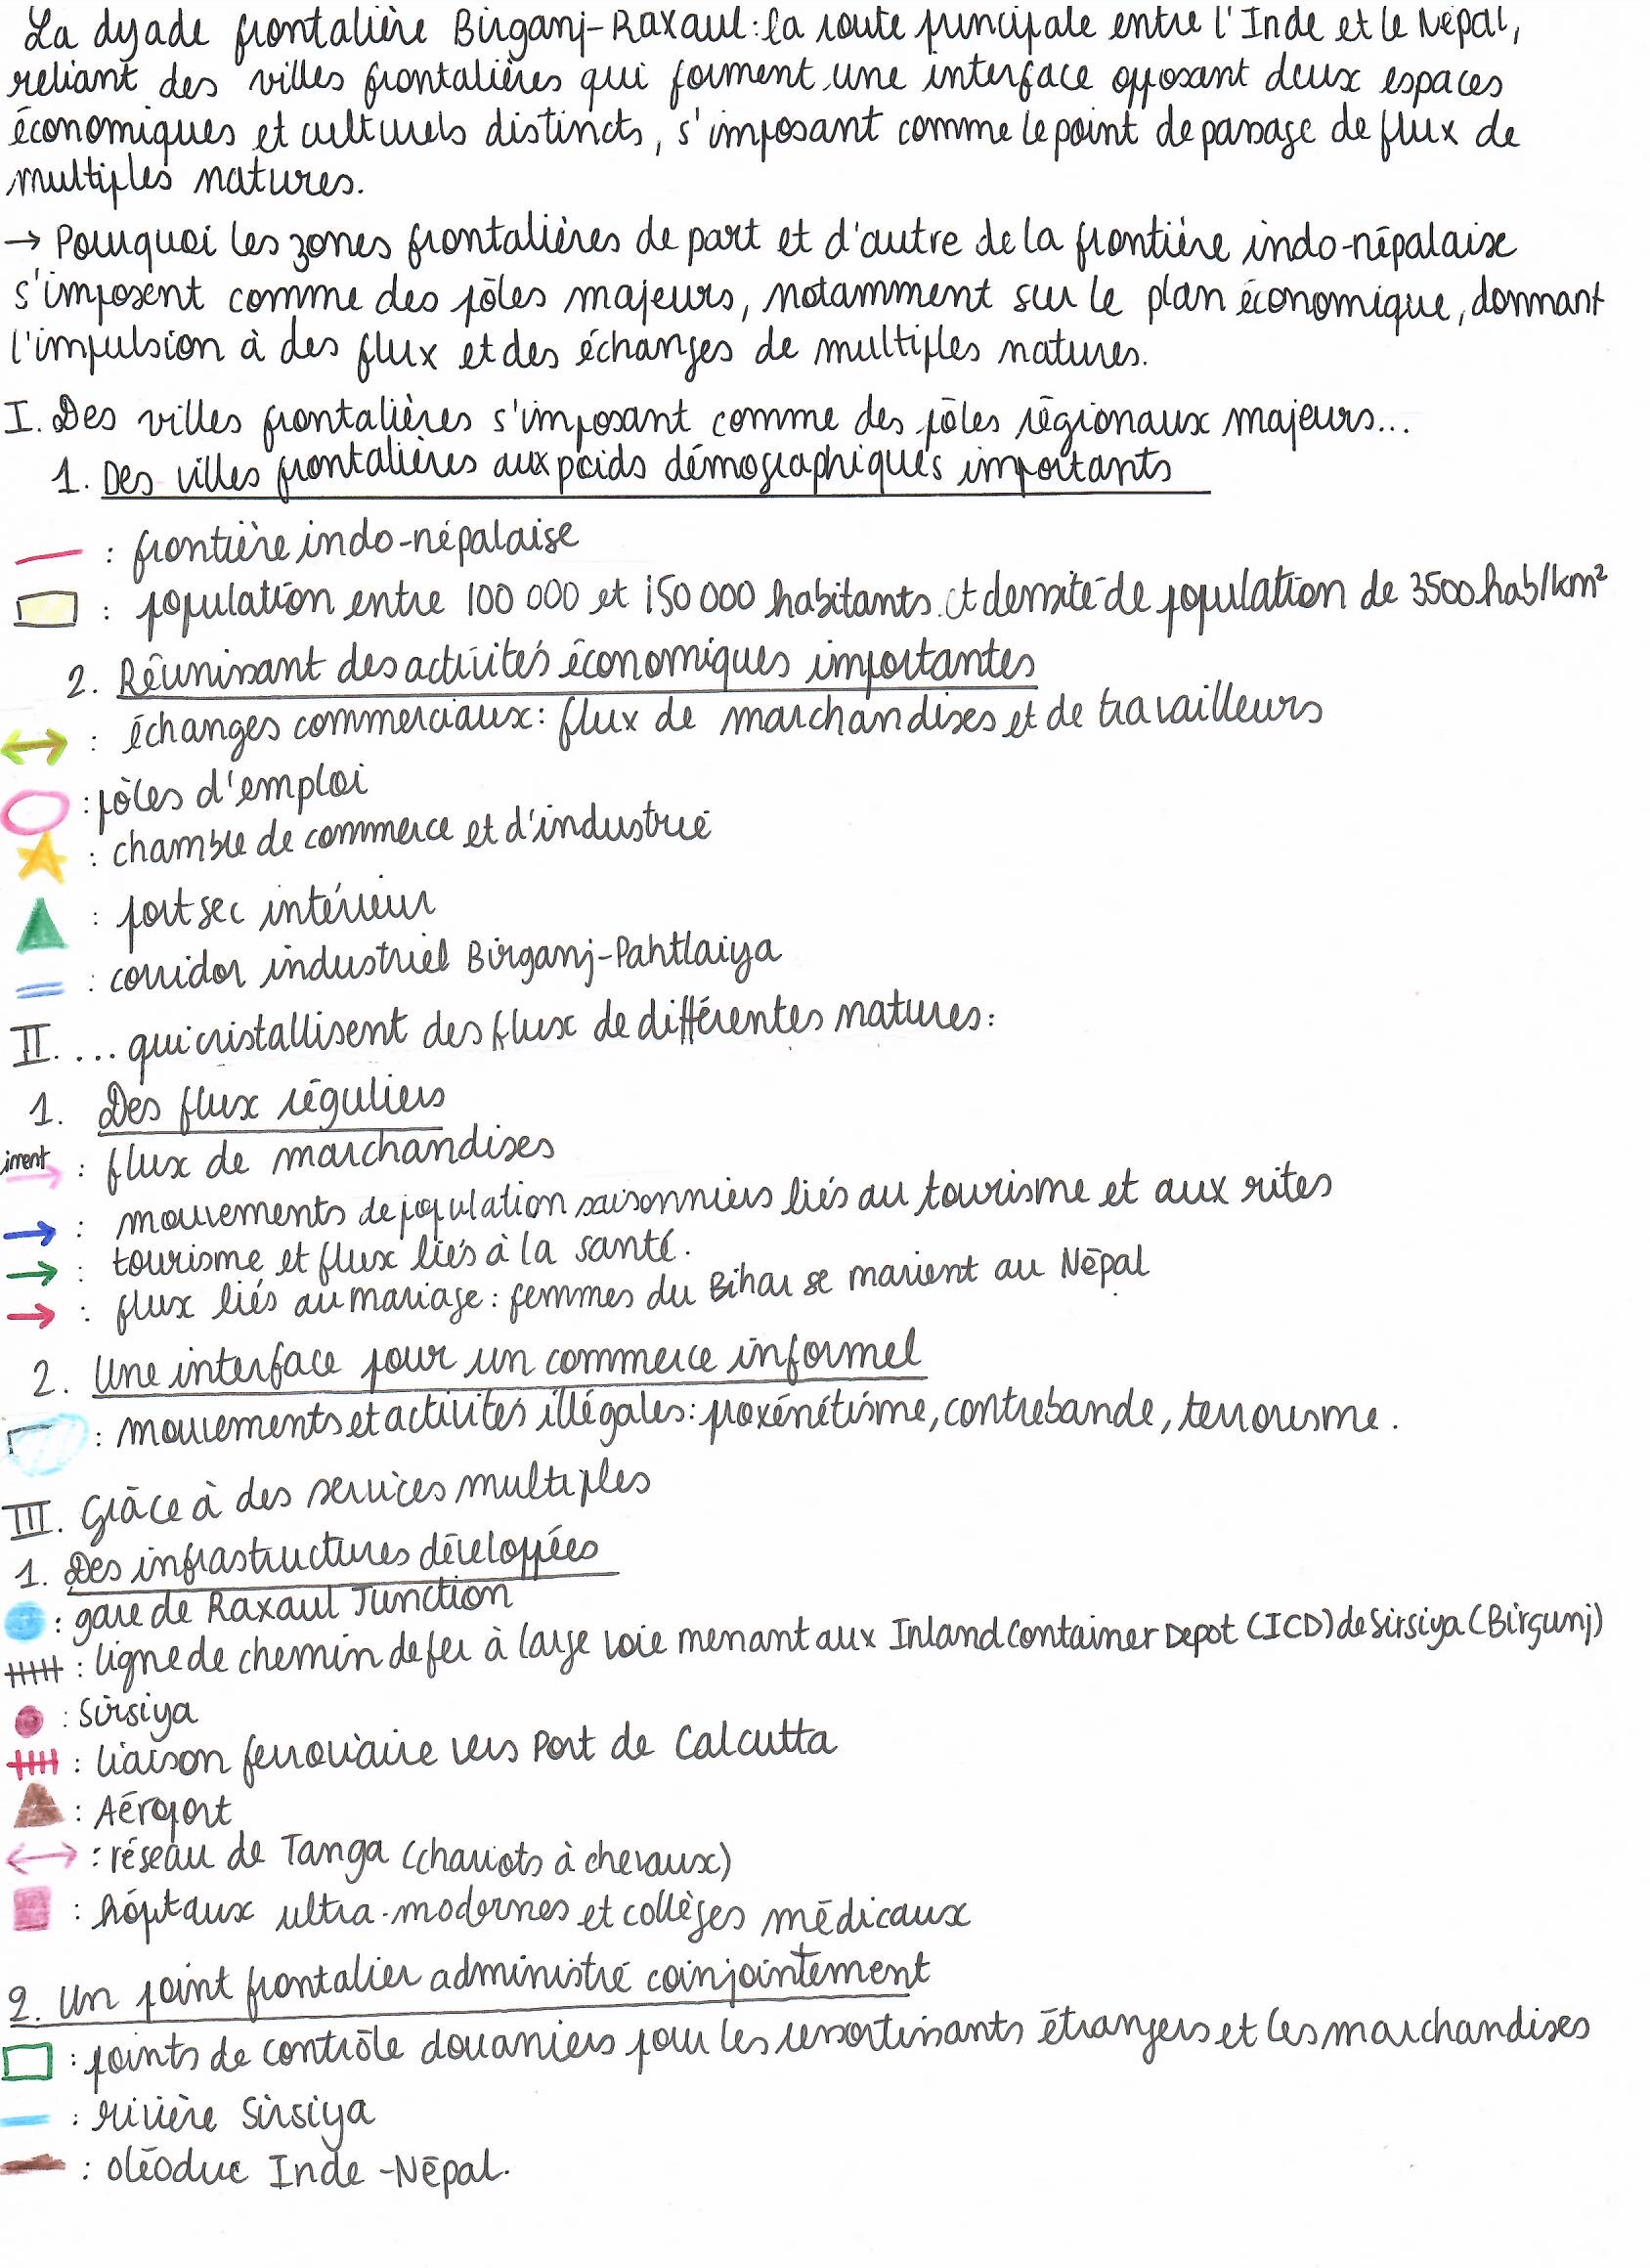 La dyade frontalière Birganj-Raxaul : la route principale entre l'Inde et le Népal,
reliant des villes frontalières qui forment une interface opposant deux espaces
économiques et culturels distincts, s'imposant comme le point de passage de flux de
multiples natures.
→ Pourquoi les zones frontalières de part et d'autre de la frontière indo-népalaise
s'imposent comme des pôles majeurs, notamment sur le plan économique, donnant
l'impulsion à des flux et des échanges de multiples natures.
I. Des villes frontalières s'imposant comme des pôles régionaux majeurs...
1. Des villes frontalières aux poids démographiques importants
: frontière indo-népalaise
: population entre 100 000 et 150 000 habitants. et densité de population de 3500 hab/km²
2. Réunissant des activités économiques importantes
: échanges commerciaux : flux de marchandises et de travailleurs
: pôles d'emploi
: chambre de commerce et d'industrie
: port sec intérieur
: corridor industriel Birganj-Pahtlaiya
II. ... qui cristallisent des flux de différentes natures :
1. Des flux réguliers
iment : flux de marchandises
: mouvements de population saisonniers liés au tourisme et aux rites
: tourisme et flux liés à la santé.
: flux liés au mariage : femmes du Bihar se marient au Népal
2. Une interface pour un commerce informel
: mouvements et activités illégales : proxénétisme, contrebande, terrorisme.
III. Grâce à des services multiples
1. Des infrastructures développées
: gare de Raxaul Junction
: ligne de chemin de fer à large voie menant aux Inland Container Depot (ICD) de Sirsiya (Birgunj)
: Sirsiya
: liaison ferroviaire vers Port de Calcutta
: Aéroport
: réseau de Tanga (chariots à chevaux)
: hôptaux ultra-modernes et collèges médicaux
2. Un point frontalier administré coinjointement
: points de contrôle douaniers pour les ressortissants étrangers et les marchandises
: rivière Sirsiya
: oléoduc Inde-Népal.